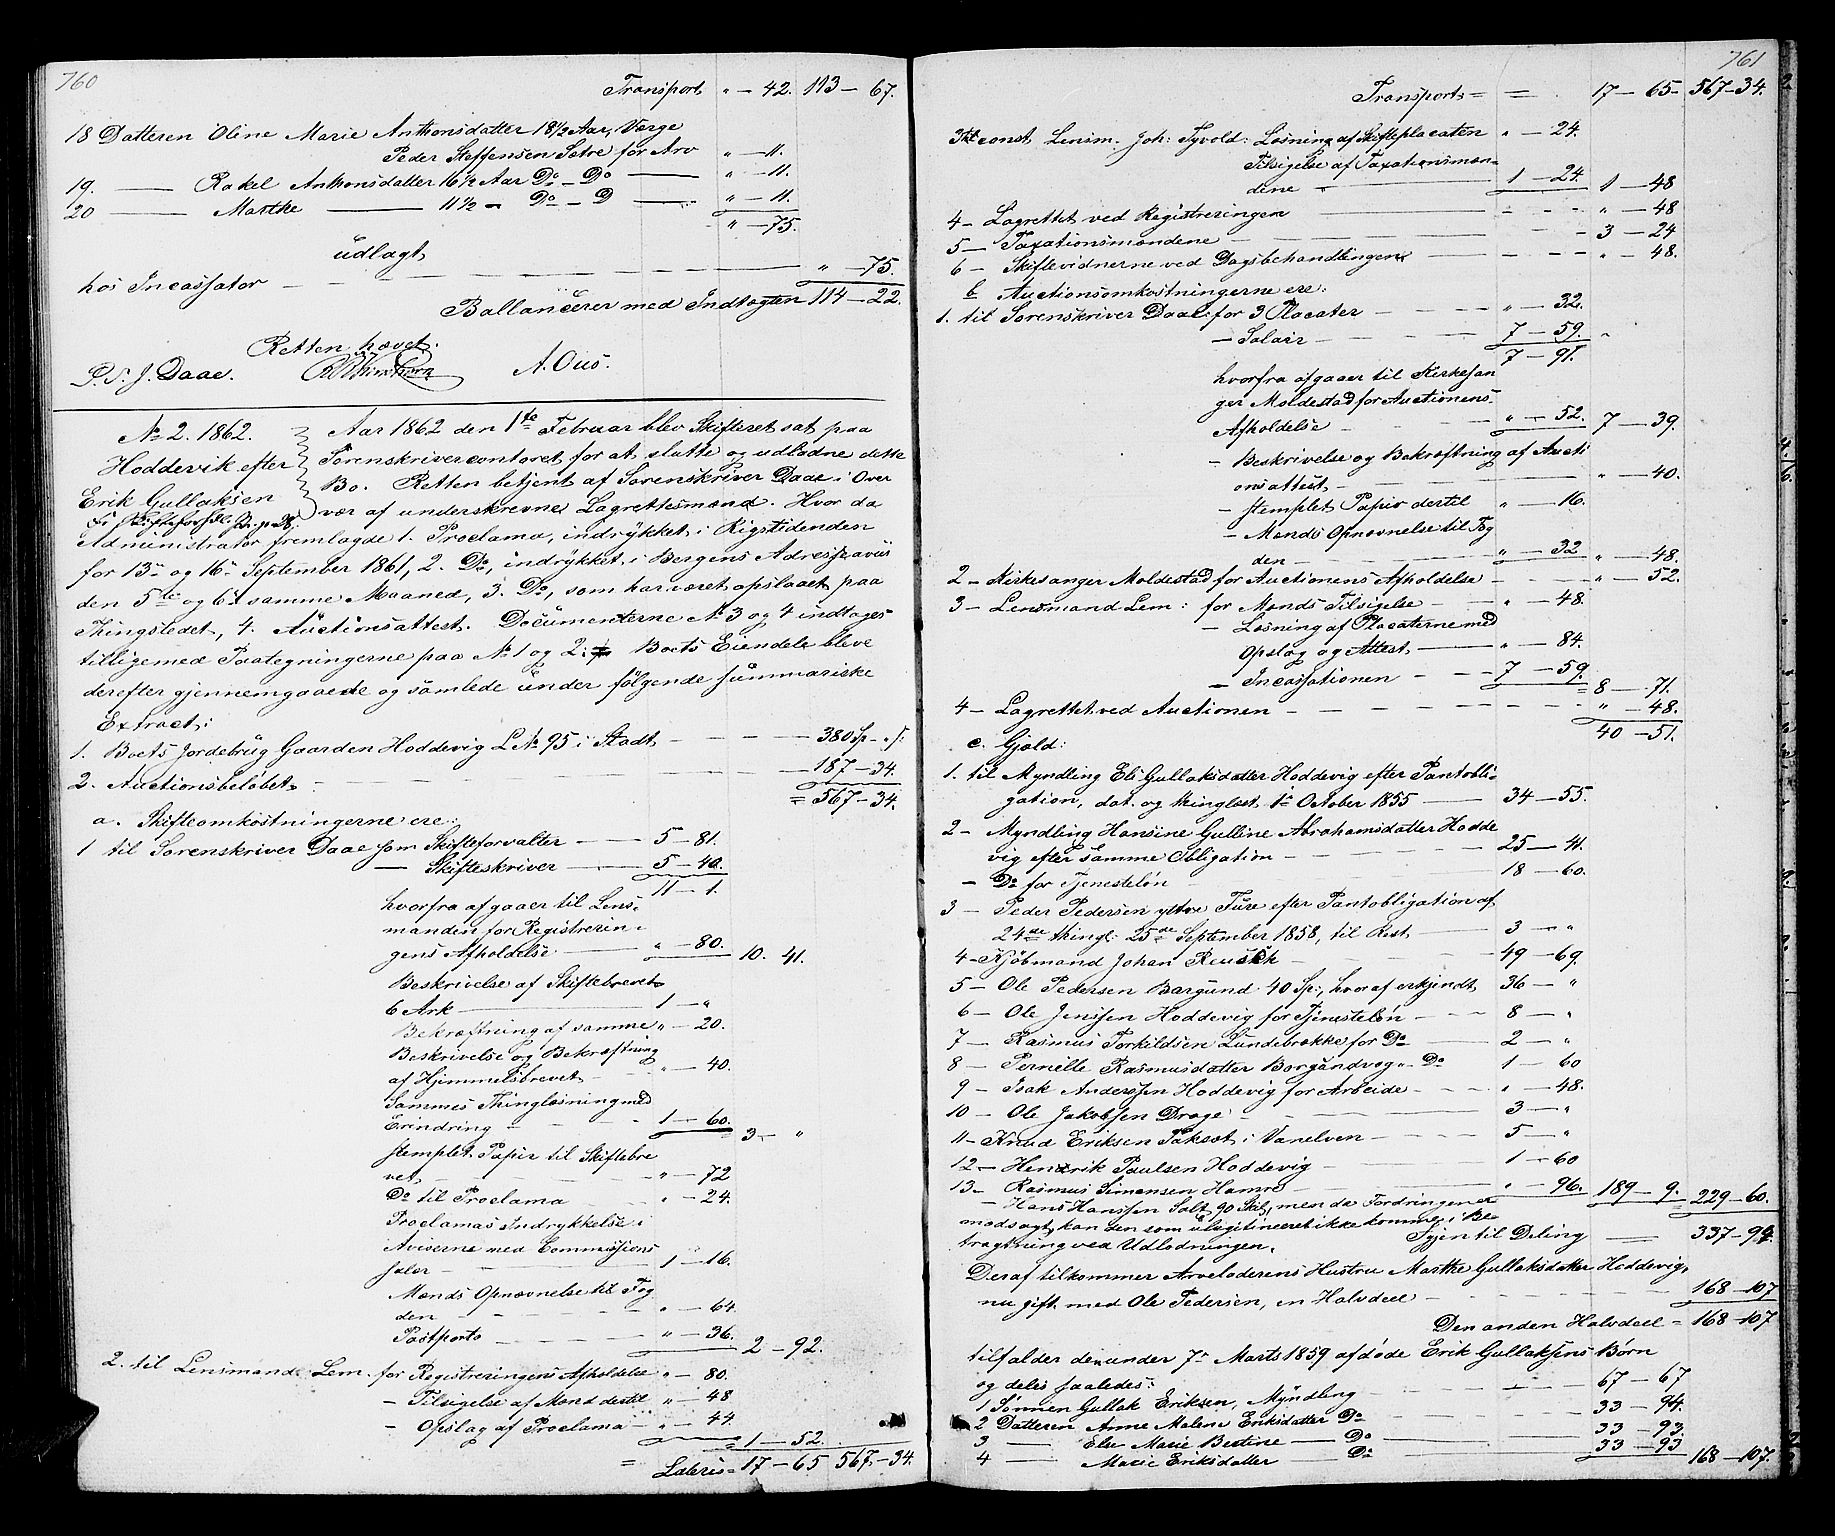 760
Transport " — 42. 113 — 67.
18 Datteren Oline Marie Anthonsdatter 18 1/2 Aar, Værge
Peder Steffensen Sætre for Arv " — 11.
19. — Rakel Anthonsdatter 16 1/2 Aar Do — Do — " — 11.
20 — Marthe — 11 1/2 — Do — D — " — 11.
" — 75.
udlagt
hos Incassator — " — 75.
Ballancerer med Indtægten 114 — 22.
Retten hævet.
P. S. J. Daae. A. Ous.
No 2. 1862.
Hoddevik efter
Erik Gullaksen
Aar 1862 den 1te Februar blev Skifteret sat paa
Sorenskrivercontoret for at slutte og udlodne dette
Bo. Retten betjent af Sorenskriver Daae i Over
vær af underskrevne Lagrettesmænd. Hvor da
Administrator fremlagde 1. Proclama, indrykket i Rigstidenden
for 13de og 16de September 1861, 2. Do, indrykket i Bergens Adresseavis
den 5te og 6te samme Maaned, 3. Do, som har været opslaaet paa
Thingstedet, 4. Auctionsattest. Documenterne No 3 og 4 indtages
tilligemed Paategningerne paa No 1 og 2. Boets Eiendele bleve
derefter gjennemgaaede og samlede under følgende summariske
Extract:
1. Boets Jordebrug Gaarden Hoddevig L No 95 i Stadt — 380 Sp — " s:
2. Auctionsbeløbet — 187 — 34.
= 567 — 34.
a. Skifteomkostningerne ere:
1 til Sorenskriver Daae som Skifteforvalter — 5 — 81.
— Skifteskriver — 5 — 40.
11 — 1.
hvorfra afgaaer til Lens-
manden for Registrerin-
gens Afholdelse — " — 80. 10. 41.
Beskrivelse af Skiftebrevet
6 Ark — 1 — "
Bekræftning af samme " — 20.
Beskrivelse og Bekræftning
af Hjemmelsbrevet — " — 40.
Sammes Thinglæsning med
Erindring — 1 — 60. 3 — "
stemplet Papir til Skiftebre
vet — " — 72
Do til Proclama " — 24.
Proclamas Indrykkelse i
Aviserne med Commissions
salær — 1 — 16.
Mænds Opnævnelse til Fog
den — " — 64.
Postporto — " — 36. 2 — 92.
2. til Lensmand Lem for Registreringens Afholdelse " — 80.
— Tilsigelse af Mænd dertil " — 48
— Opslag af Proclama — " — 44
= 1 — 52.
= Lateris = 17 — 65 567 — 34.
761
Transport = = 17 — 65 567 — 34.
3 til const Lensm. Joh: Tyvold: Løsning af Skifteplacaten " — 24.
Tilsigelse af Taxationsmæn-
dene — 1 — 24. 1 — 48
4 — Lagrettet ved Registreringen — " — 48
5 — Taxationsmændene — 3 — 24
6 — Skiftevidnerne ved Dagsbehandlingen — " — 48.
b Auctionsomkostningerne ere:
1. til Sorenskriver Daae for 3 Placater — " — 32.
— Salair — 7 — 59. "
7 — 91.
hvorfra afgaaer til Kirkesan
ger Moldestad for Auctionens
Afholdelse — " — 52. 7 — 39.
— Beskrivelse og Bekræftning af Aucti
onsattest — " — 40.
— stemplet Papir dertil " — 16.
— Mænds Opnævnelse til Fog
den — " — 32 " — 48.
2 — Kirkesanger Moldestad for Auctionens Afholdelse — " — 52.
3 — Lensmand Lem: for Mænds Tilsigelse — " — 48.
— Løsning af Placaterne med
Opslag og Attest — " — 84.
— Incassationen — 7 — 59.
= 8 — 71.
4 — Lagrettet ved Auctionen — " — 48.
40 — 51.
c. Gjæld:
1. til Myndling Eli Gullaksdatter Hoddevig efter Pantobli-
gation, dat. og thinglæst 1te October 1855 — 34 — 55.
2 — Myndling Hansine Gulline Abrahamsdatter Hodde
vig efter samme Obligation — 25 — 41.
— Do for Tjenesteløn 18 — 60.
3 — Peder Pedersen ytre Fure efter Pantobligation af
24de thingl: 25de September 1858, til Rest — 3 — "
4 — Kjøbmand Johan Reusch — 49 — 69.
5 — Ole Pedersen Bargund 40 Sp:, hvoraf erkjendt 36 — "
6 — Ole Jenssen Hoddevig for Tjenesteløn — 8 — "
7 — Rasmus Torkildsen Lundebrekke for Do — 2 — "
8 — Pernille Rasmusdatter Borgundvog " Do 1 — 60
9 — Isak Anderssen Hoddevig for Arbeide — " — 48.
10 — Ole Jakobsen Drage — 3 — "
11 — Knud Eriksen Taksæt i Vanelven — 5 — "
12 — Hendrik Paulsen Hoddevig — 1 — 60
13 — Rasmus Simonsen Hamre — " — 96. 189 — 9. 229 — 60.
— Hans Hanssen Salt 90 Sk, men da Fordringen er
modsagt, kan den som ulegitimeret ikke komme i Be
tragtning ved Udlodningen.
Igjen til Deling — 337 — 94.
Deraf tilkommer Arveladerens Hustru Marthe Gullaksdatter Hoddevig,
nu gift med Ole Pedersen, en Halvdeel — 168 — 107
Den anden Halvdeel = 168 — 107
tilfalder den under 7de Marts 1859 afdøde Erik Gullaksens Børn
og deles saaledes:
1 Sønnen Gullak Eriksen, Myndling — 67 — 67
2 Datteren Anne Malene Eriksdatter Do — 33 — 94.
3 — Else Marie Bestine — Do — 33 — 93.
4 — Marie Eriksdatter — Do 33 — 93 168 — 107.